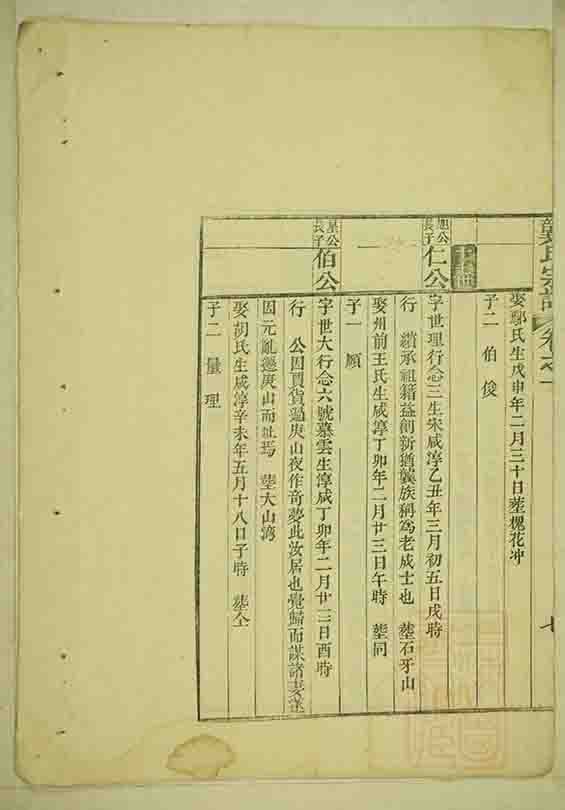 龔氏宗譜 卷之一
七
娶鄢氏生戊申年二月三十日塟槐花冲
子二 伯 俊
十五世
旭公長子 仁公
字世理行念三生宋咸淳乙丑年三月初五日戌時
行 纘承祖籍益創新猶龔族稱爲老成士也 塟石牙山
娶州前王氏生咸淳丁卯年二月廿三日午時 塟同
子一 願
公長子 伯公
字世大行念六號慕雲生淳咸丁卯年二月廿二日酉時
行 公因買貨過庚山夜作奇夢此汝居也覺歸而謀諸妻遂
因元亂遷庚山而址焉 塟大山湾
娶胡氏生咸淳辛未年五月十八日子時 塟仝
子二 量 理